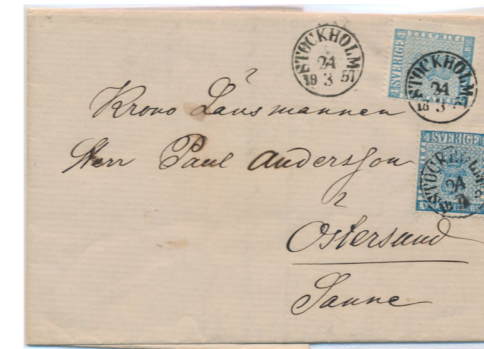 STOCKHOLM
24
18 3 57
SVERIGE
STOCKHOLM
24
18 3
4 SVERIGE 4
STOCKHOLM
24
Krono Länsmannen
Herr Paul Andersson
Östersund
Sunne